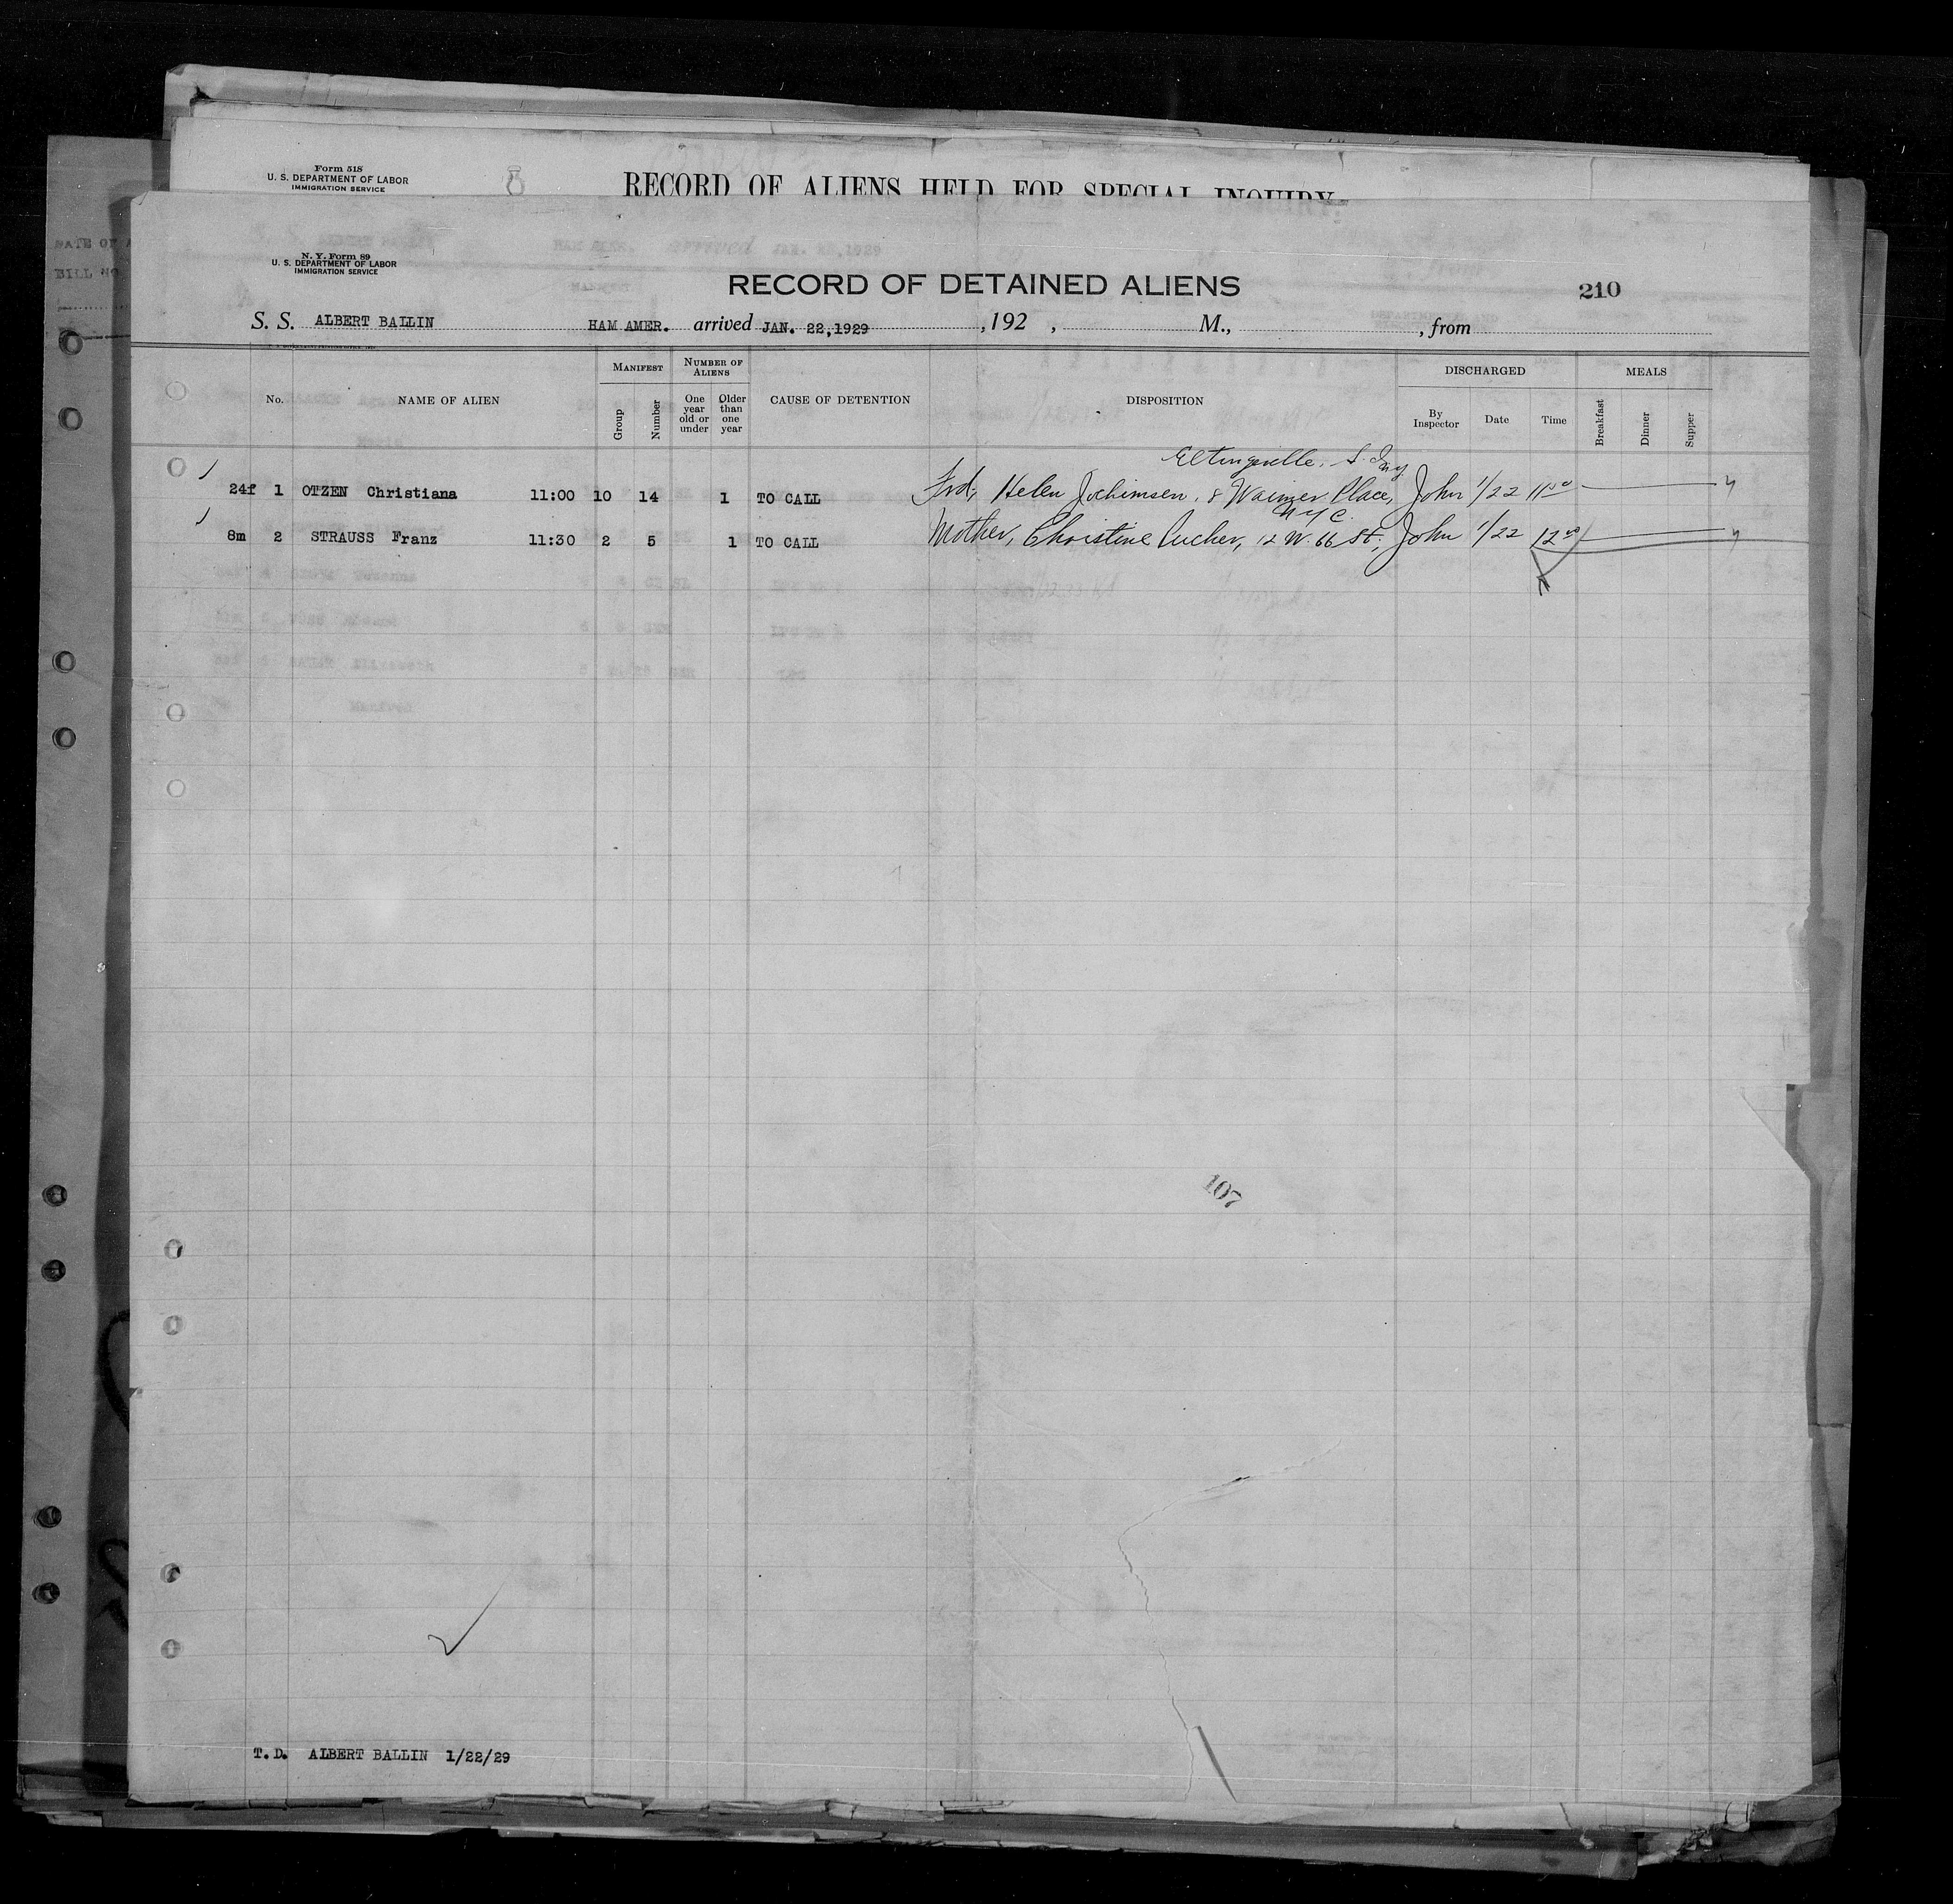 Form 518
U. S. DEPARTMENT OF LABOR
IMMIGRATION SERVICE
RECORD OF ALIENS HELD FOR SPECIAL INQUIRY
DATE OF
BILL NO
N. Y. Form 89
U. S. DEPARTMENT OF LABOR
IMMIGRATION SERVICE
RECORD OF DETAINED ALIENS
210
S. S. ALBERT BALLIN HAM AMER. arrived JAN. 22, 1929, 192 , M., , from
No. NAME OF ALIEN MANIFEST Group Number NUMBER OF ALIENS One year old or under Older than one year CAUSE OF DETENTION DISPOSITION DISCHARGED By Inspector Date Time MEALS Breakfast Dinner Supper
Eltingville, S. I. N.Y.
24f 1 OTZEN Christiana 11:00 10 14 1 TO CALL Frd, Helen Jochimsen, 8 Place, John 1/22
N.Y.C.
8m 2 STRAUSS Franz 11:30 2 5 1 TO CALL Mother, Christine 12 W. 66 St., John 1/22 12
107
T.D. ALBERT BALLIN 1/22/29